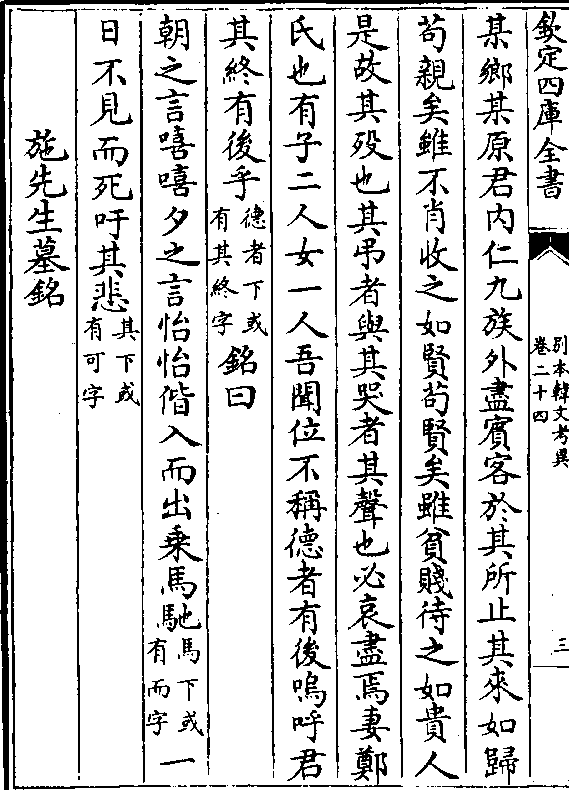 欽定四庫全書
別本韓文考異
卷二十四
三
某鄉某原君內仁九族外盡賓客於其所止其來如歸
苟親矣雖不肖收之如賢苟賢矣雖貧賤待之如貴人
是故其殁也其弔者與其哭者其聲也必哀盡焉妻鄭
氏也有子二人女一人吾聞位不稱德者有後嗚呼君
其終有後乎德者下或有其終字銘曰
朝之言嘻嘻夕之言怡怡偕入而出乗馬馳馬下或有而字一
日不見而死吁其悲其下或有可字
施先生墓銘